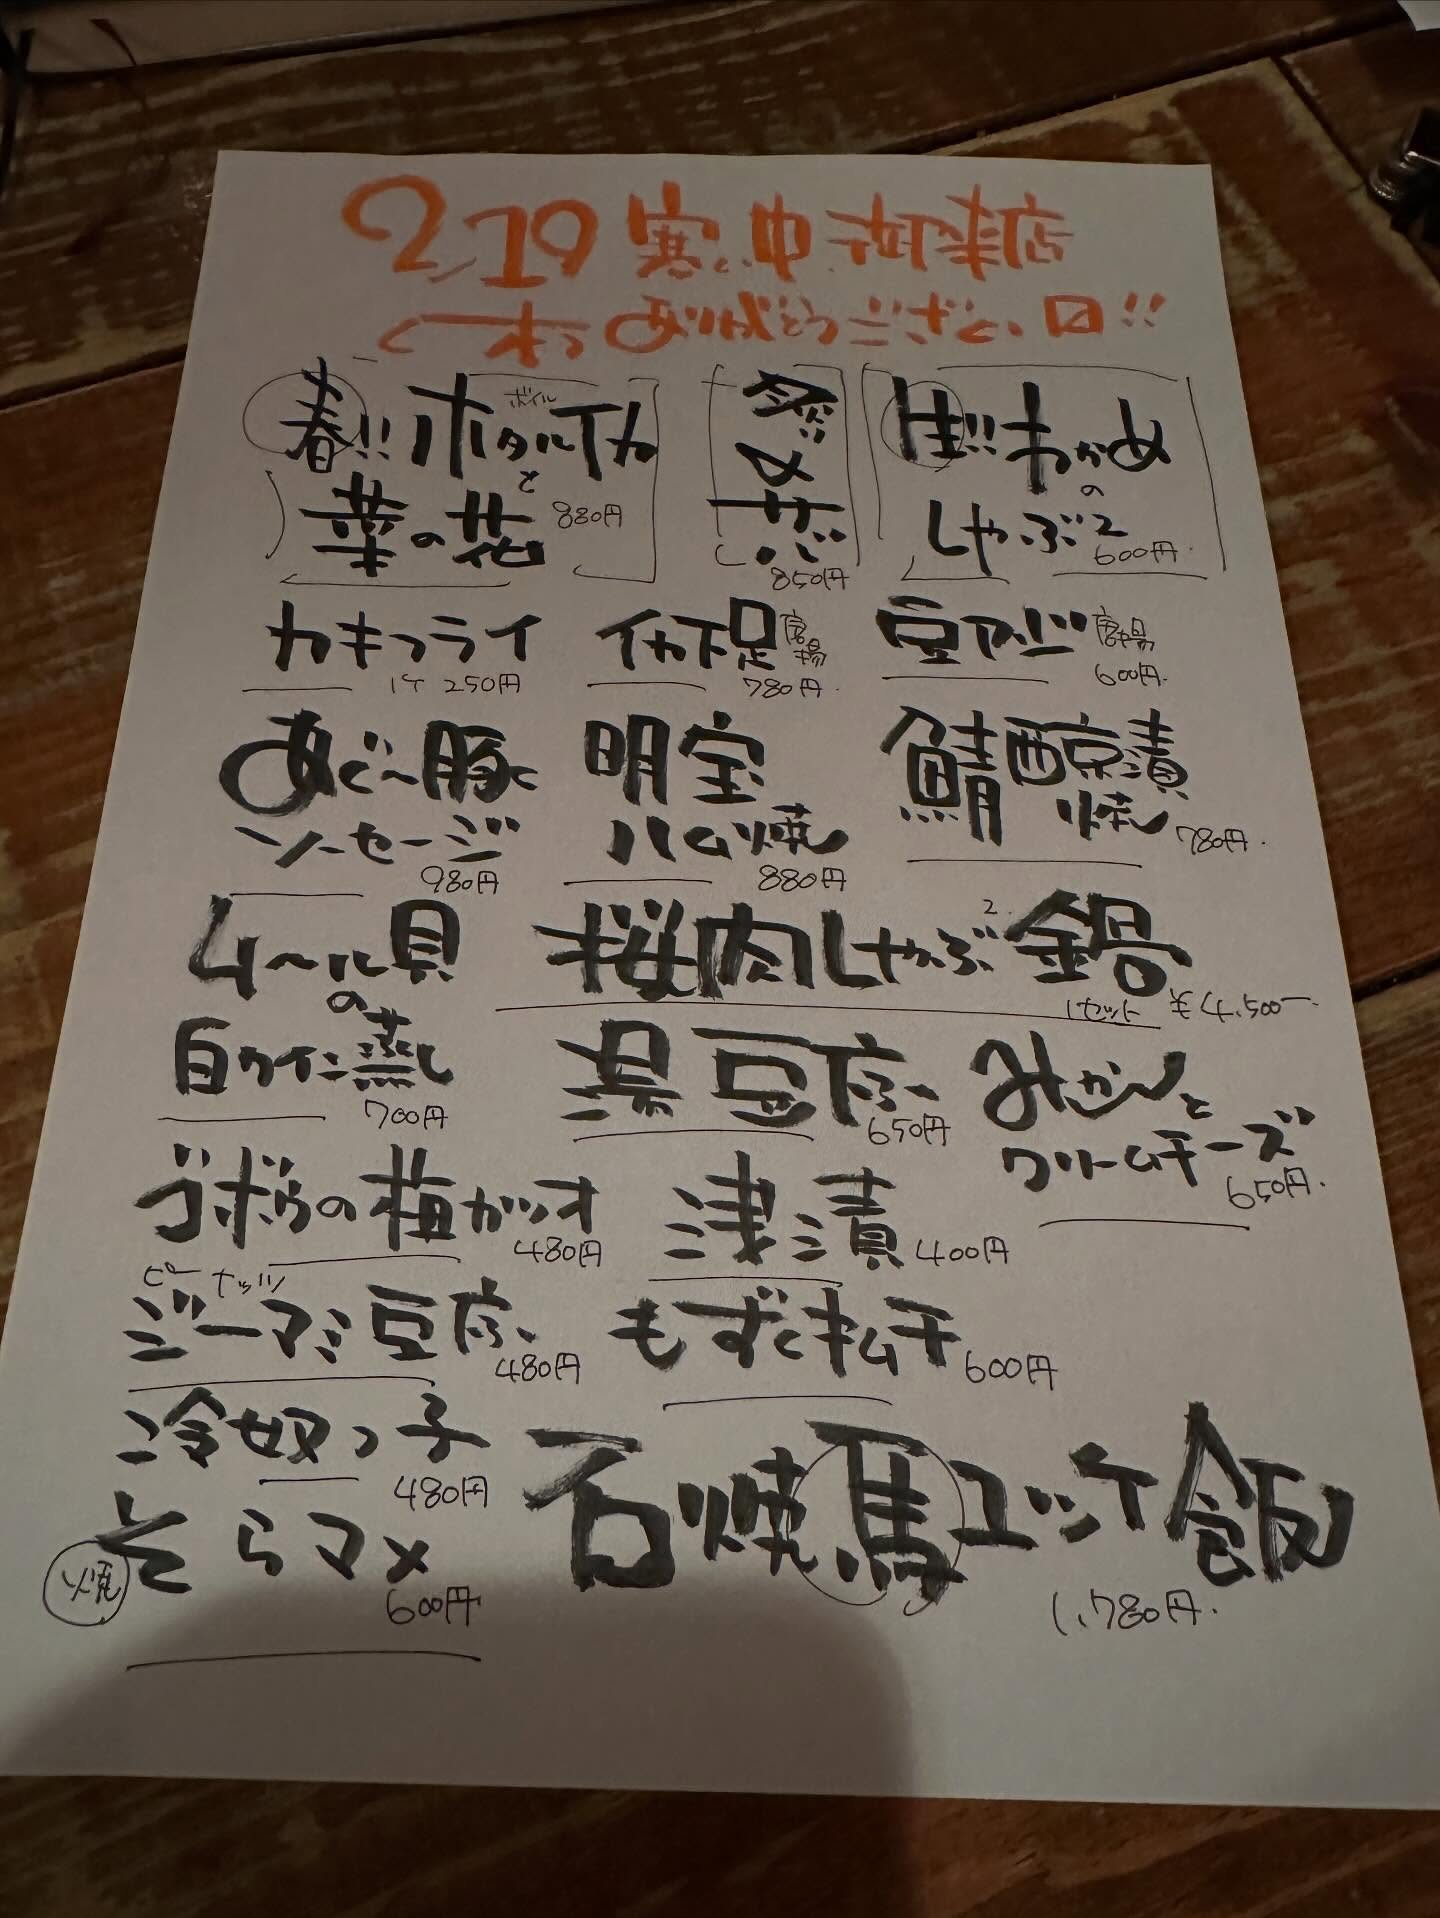 2/19 寒い中御来店
くださありがとうござい〼!!
春!! ホタルイカ ボイル
と
菜の花 880円
〆
850円
生!! わかめ
の
しゃぶ2 600円
カキフライ
1ケ 250円
イカ下足 唐揚
780円
豆アジ 唐揚
600円
あぐ〜豚
ソーセージ
980円
明宝
ハム焼
880円
鯖醂漬
焼 780円
ムール貝
の
白ワイン蒸し
700円
桜肉しゃぶ2鍋
1セット ¥4,500ー
湯豆腐 650円
みかんと
クリームチーズ
650円
ゴボウの梅ガツオ
480円
浅漬 400円
ピーナッツ
ジーマミ豆腐
480円
もずくキムチ 600円
冷奴っ子
480円
焼 そらマメ
600円
石焼馬ユッケ飯
1,780円